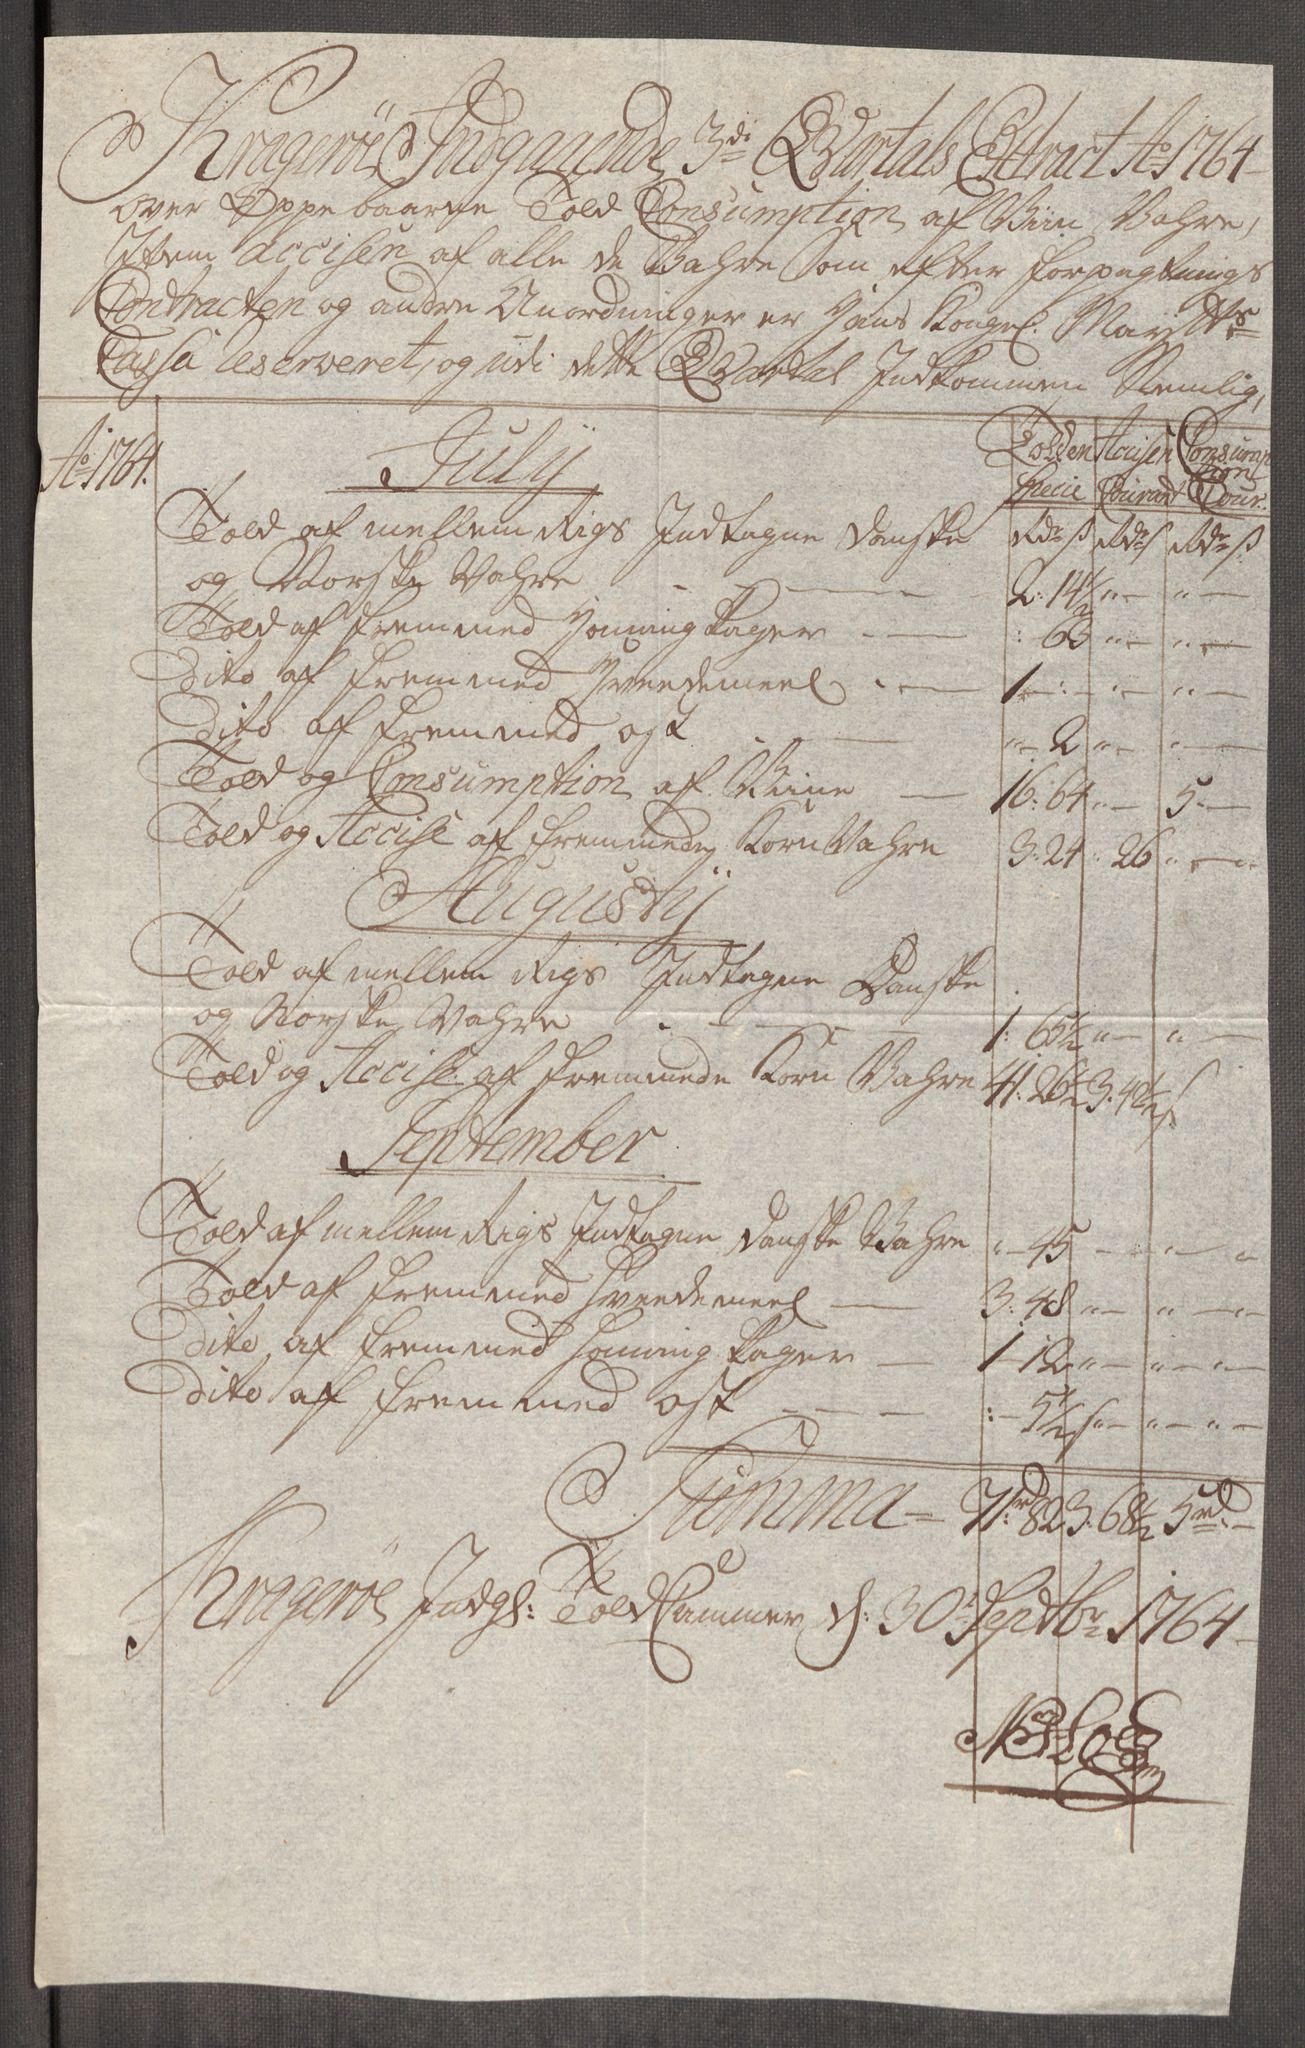 Kragerøe Indgaaende 3di Qvartals Extract Ao 1764
over Oppebaarne Told Consumption af Viin Vahre,
Item Accisen af alle de Vahre Som efter forpagtnings
Contracten og andre Anordninger er Hans Kongel. Mayts
Cassa reserveret, og udi dette Qvartal Indkommen Nemlig,
Ao 1764.
July
Tolden Accisen Consumption
Specie Courant Cour.
Told af mellem Rigs Indtagne Danske Rdr ß Rdr ß Rdr ß
og Norske Vahre 2: 14½ " — " —
Told af fremmed Honning Kager — : 63 " — " —
Dito af fremmed Hvedemeel — 1 — " — " —
Dito af fremmed ost — " 2 " — " —
Told og Consumption af Viine — 16: 64 " — 5 —
Told og Accise af fremmede Korn Vahre 3: 24 " 26 " —
Augusty
Told af mellem Rigs Indtagne Danske
og Norske Vahre — 1: 65½ " — " —
Told og Accise af fremmede Korn Vahre 41: 26½ 3: 42½ ß
September
Told af mellem Rigs Indtagne Danske Vahre " 45 — " — "
Told af fremmed Hvedemeel — 3: 48 " — " — "
Dito af fremmed Honning Kager — 1 12 " — " — " —
Dito af fremmed ost — — — : 5½ ß " — " — " —
Summa = 71rd 82 3: 68½ 5rd —
Kragerøe Indg: Told Cammer d: 30t Septbr 1764